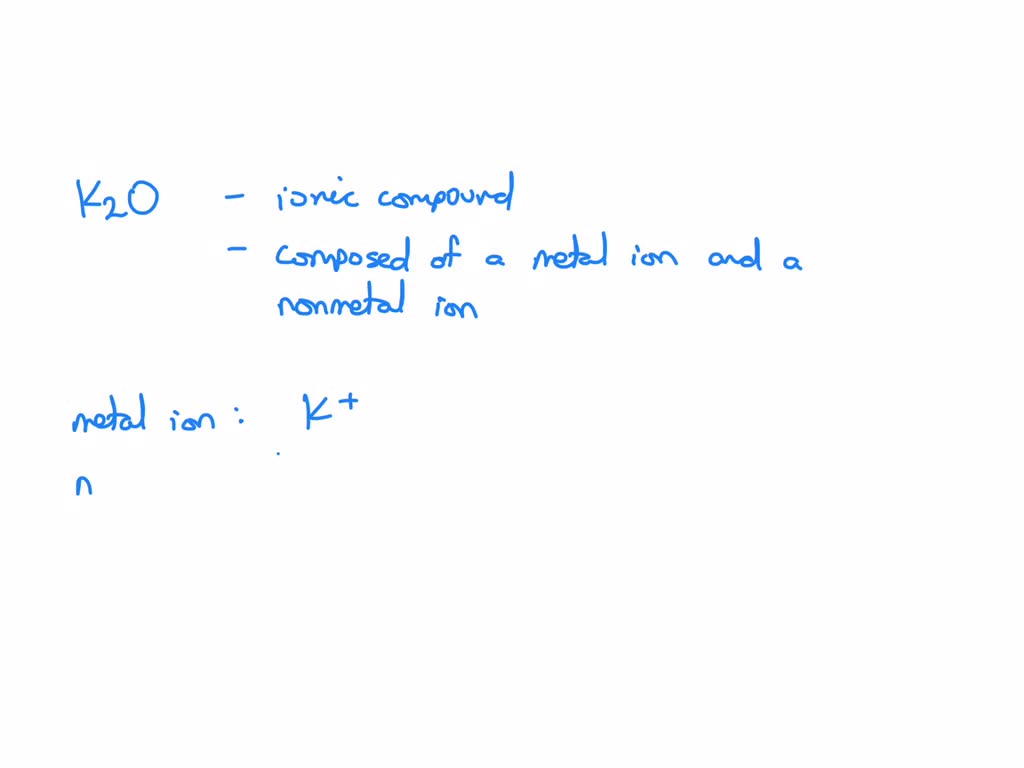 K₂O - ionic compound
- composed of a metal ion and a
nonmetal ion
metal ion : K⁺
n